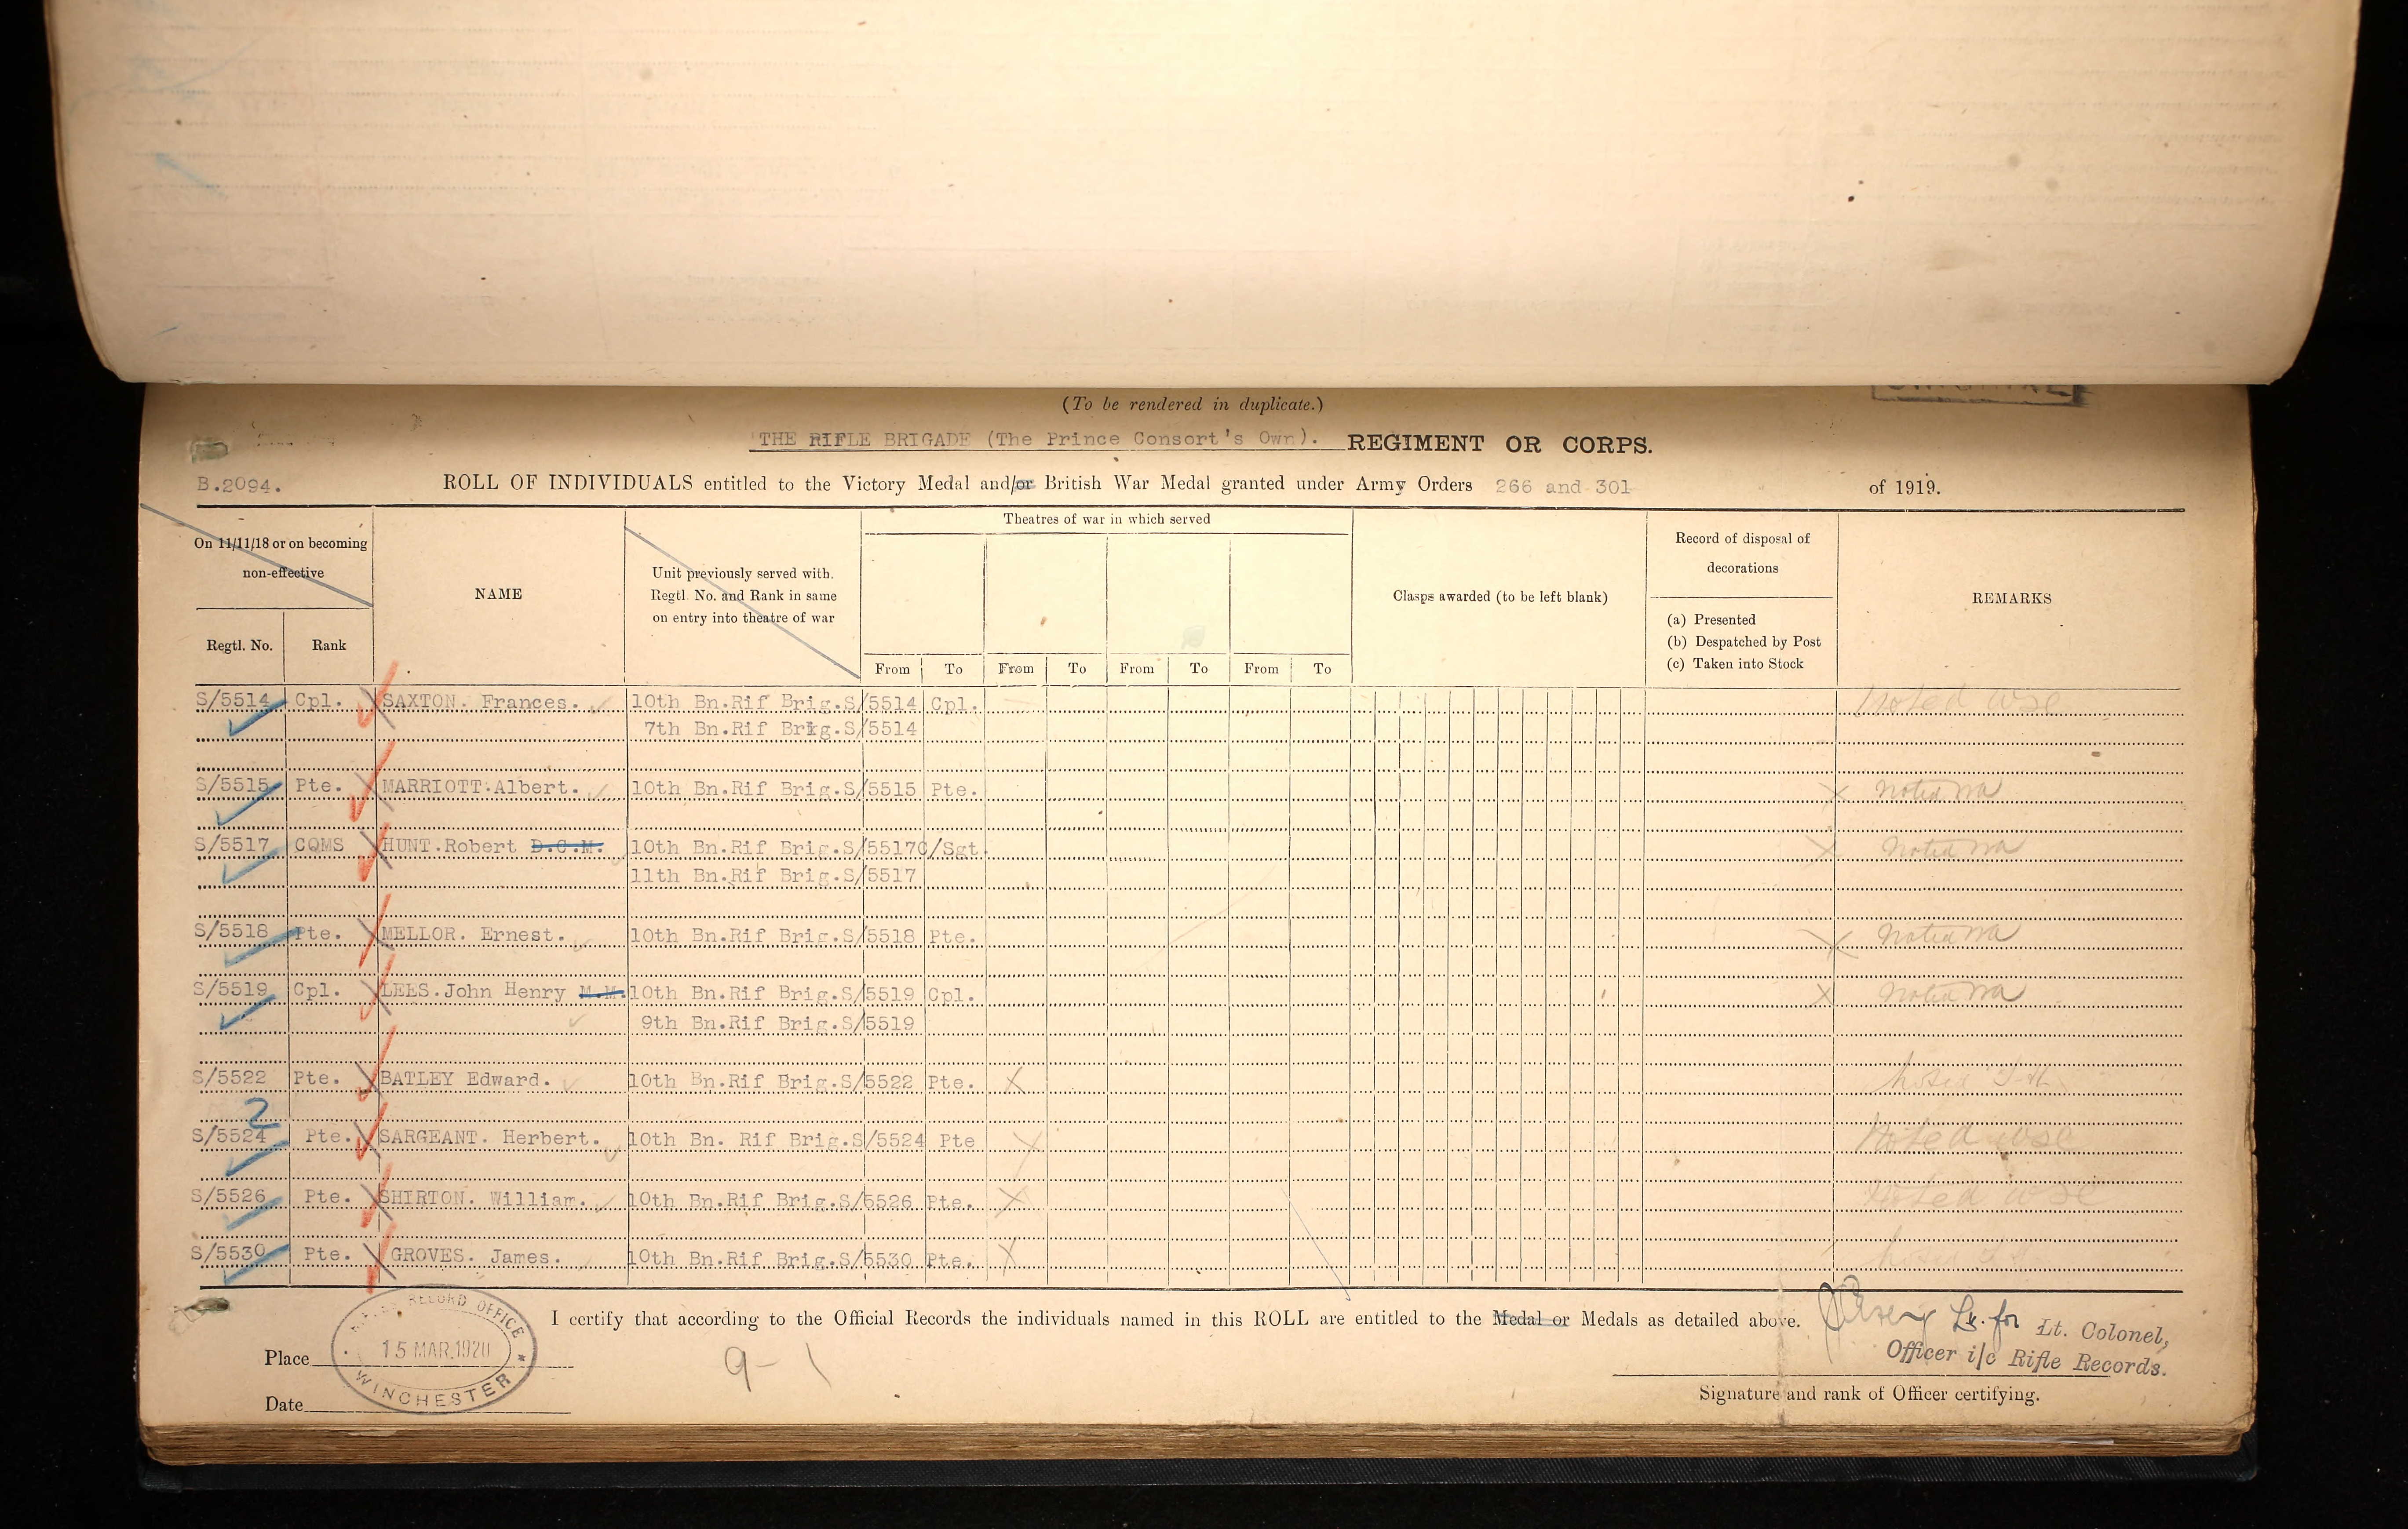 (To be rendered in duplicate.)
THE RIFLE BRIGADE (The Prince Consort's Own). REGIMENT OR CORPS.
B.2094. ROLL OF INDIVIDUALS entitled to the Victory Medal and/or British War Medal granted under Army Orders 266 and 301 of 1919.
On 11/11/18 or on becoming non-effective
Regtl. No. Rank
NAME
Unit previously served with. Regtl. No. and Rank in same on entry into theatre of war
Theatres of war in which served
From To From To From To From To
Clasps awarded (to be left blank)
Record of disposal of decorations
(a) Presented
(b) Despatched by Post
(c) Taken into Stock
REMARKS
S/5514 Cpl. SAXTON. Frances. 10th Bn.Rif Brig.S/5514 Cpl. Noted
7th Bn.Rif Brig.S/5514
S/5515 Pte. MARRIOTT.Albert. 10th Bn.Rif Brig.S/5515 Pte. X Noted
S/5517 CQMS HUNT.Robert D.C.M. 10th Bn.Rif Brig.S/5517 C/Sgt. X Noted
11th Bn.Rif Brig.S/5517
S/5518 Pte. MELLOR. Ernest. 10th Bn.Rif Brig.S/5518 Pte. X Noted
S/5519 Cpl. LEES.John Henry M.M. 10th Bn.Rif Brig.S/5519 Cpl. X Noted
9th Bn.Rif Brig.S/5519
S/5522 Pte. BATLEY Edward. 10th Bn.Rif Brig.S/5522 Pte. X Noted
2
S/5524 Pte. SARGEANT. Herbert. 10th Bn. Rif Brig.S/5524 Pte X Noted
S/5526 Pte. SHIRTON. William. 10th Bn.Rif Brig.S/5526 Pte. X Noted
S/5530 Pte. GROVES. James. 10th Bn.Rif Brig.S/5530 Pte. X Noted
I certify that according to the Official Records the individuals named in this ROLL are entitled to the Medal or Medals as detailed above.
Lt. for Lt. Colonel,
Officer i/c Rifle Records.
Signature and rank of Officer certifying.
RECORD OFFICE
15 MAR.1920
WINCHESTER
Place
Date
9-1